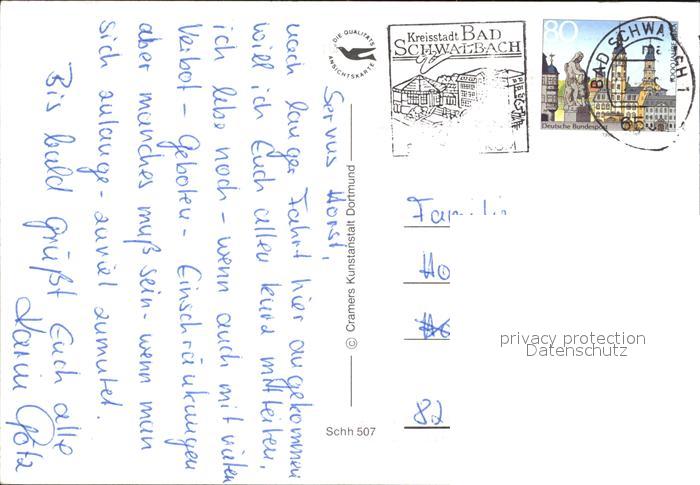 Servus Horst,
nach langer Fahrt hier angekommen
will ich Euch allen kurz mitteilen,
ich lebe noch - wenn auch mit vielen
Verbot - Geboten - Einschränkungen
aber manches muß sein - wenn man
sich zulange - zuviel zumutet.
Bis bald grüßt Euch alle
Karin Götz
DIE QUALITÄTS
ANSICHTSKARTE
Kreisstadt BAD
SCHWALBACH
80
Deutsche Bundespost
BAD SCHWALBACH 1
65
© Cramers Kunstanstalt Dortmund
Schh 507
Familie
Ho
82
privacy protection
Datenschutz